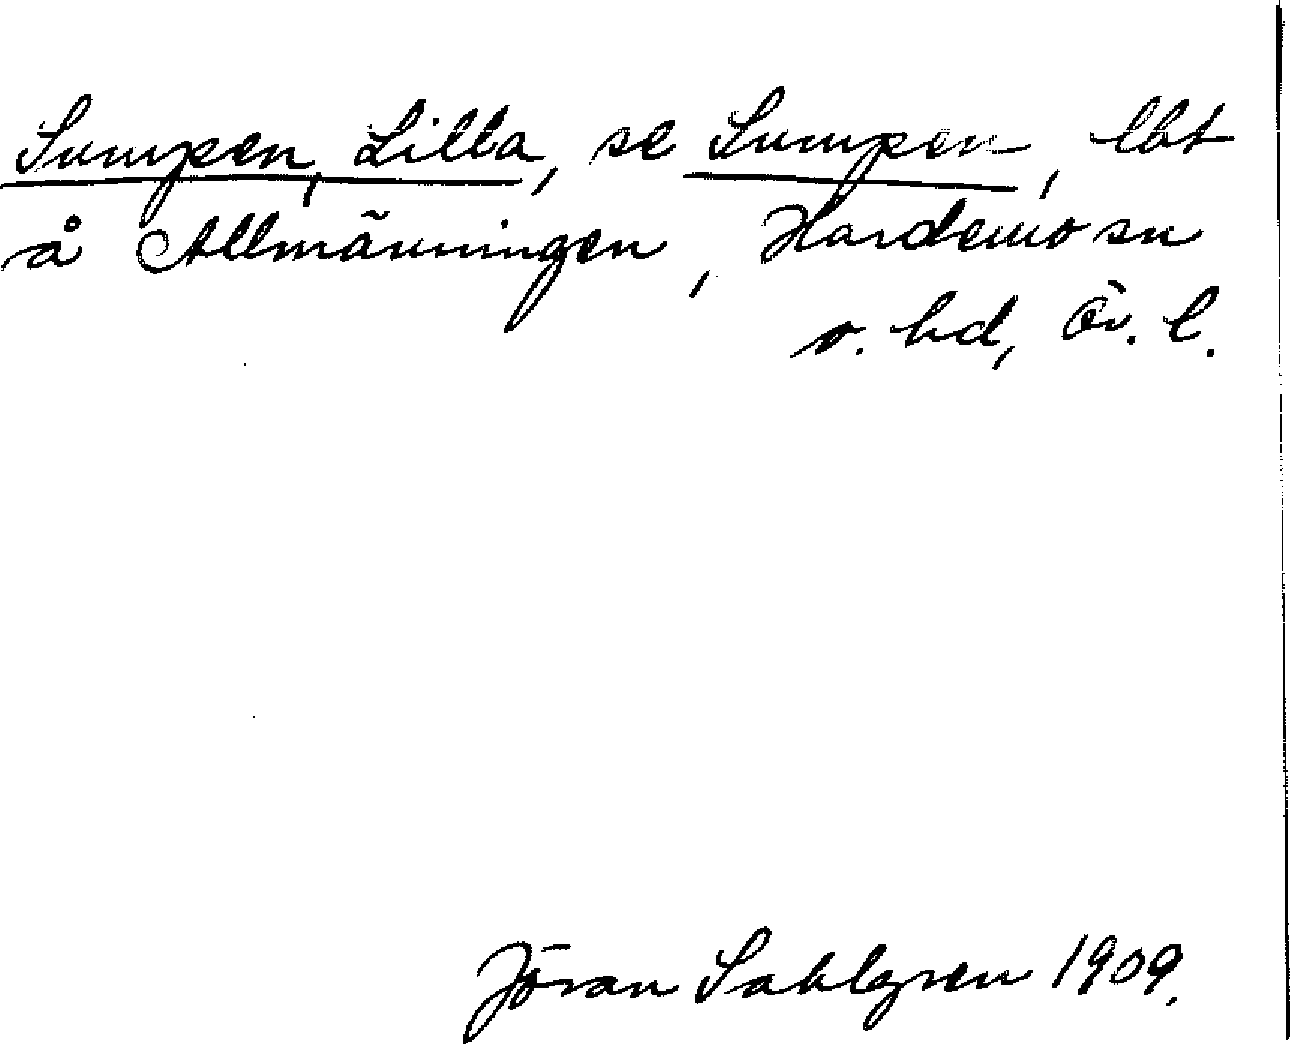 Sumpen, Lilla, se Sumpen, lbt
å Allmänningen, Hardemo sn
o. hd, Ör. l.
Jöran Sahlgren 1909.